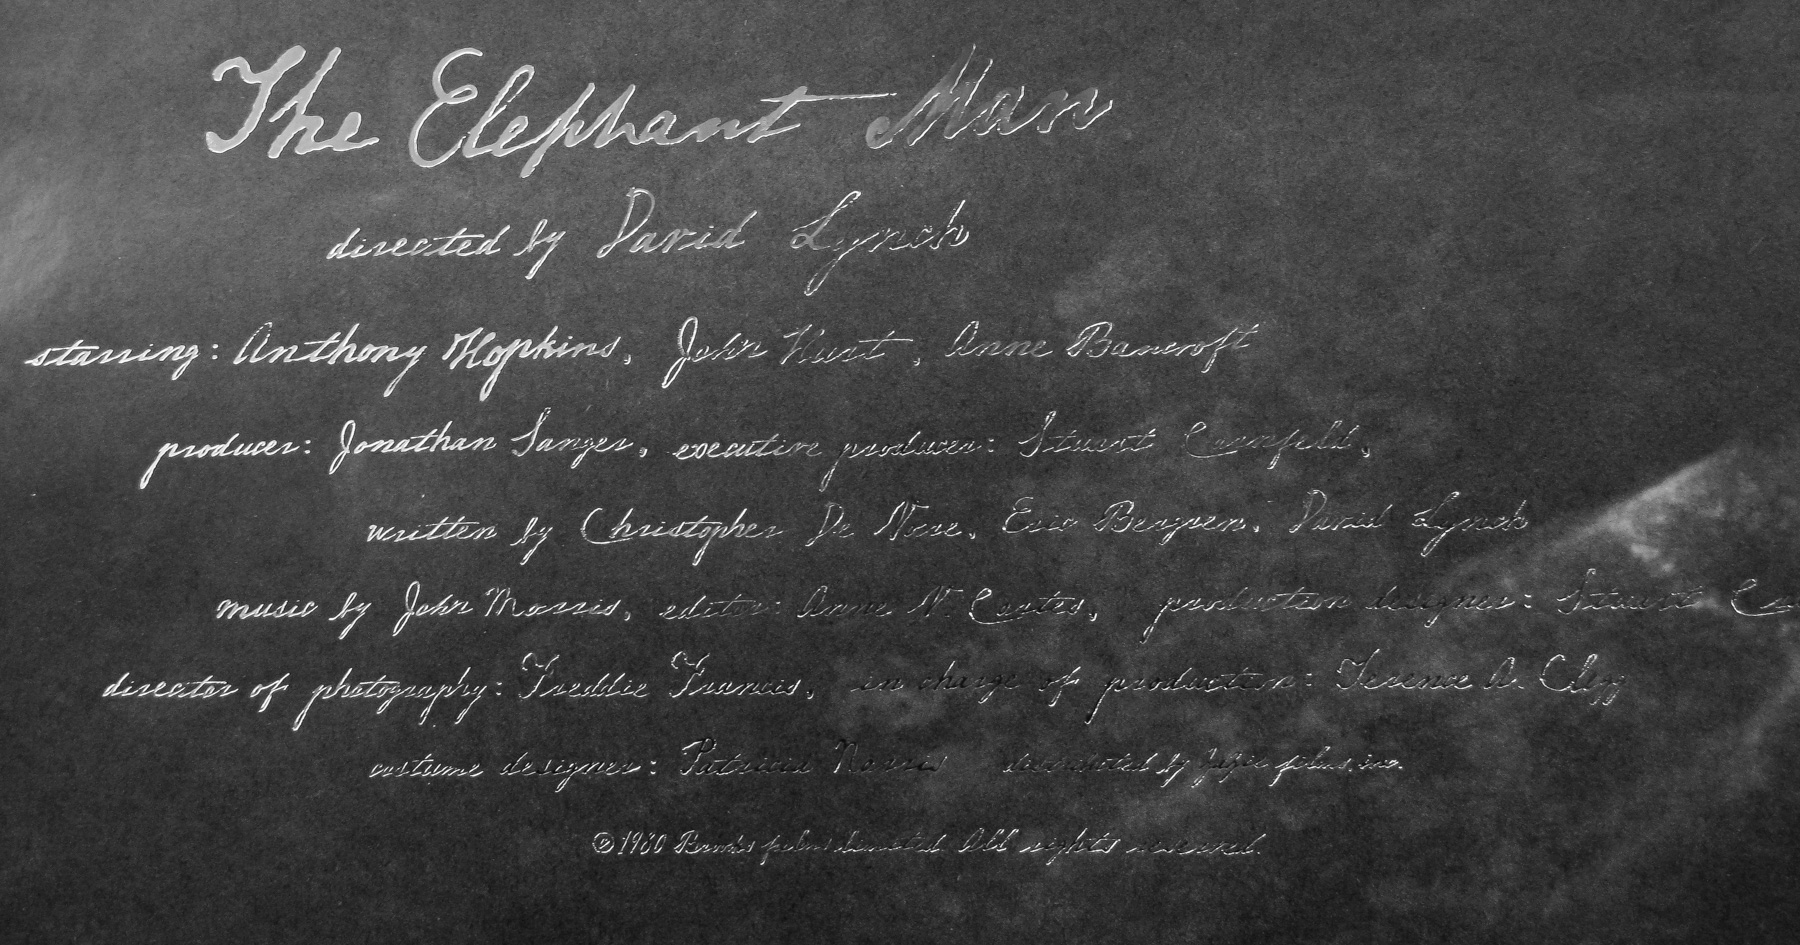 The Elephant Man
directed by David Lynch
starring: Anthony Hopkins, John Hurt, Anne Bancroft
producer: Jonathan Sanger, executive producer: Stuart Cornfeld,
written by Christopher De Vore, Eric Bergren, David Lynch
music by John Morris, editor: Anne V. Coates, production designer: Stuart
director of photography: Freddie Francis, in charge of production: Terence A. Clegg
costume designer: Patricia Norris distributed by films, inc.
©1980 Brooks films limited All rights reserved.